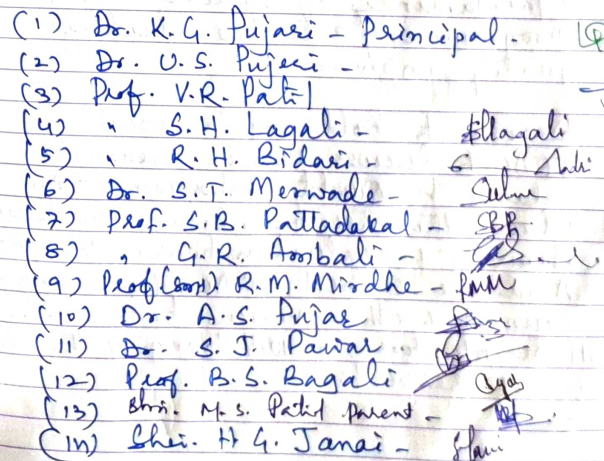 (1) Dr. K. G. Pujari - Principal.
(2) Dr. U. S. Pujeri -
(3) Prof. V. R. Patil
(4) " S. H. Lagali - SHlagali
(5) " R. H. Bidari -
(6) Dr. S. T. Merwade -
(7) Prof. S. B. Pattadakal - SBP
(8) " G. R. Ambali -
(9) Prof (Smt) R. M. Mirdhe - RMM
(10) Dr. A. S. Pujar
(11) Dr. S. J. Pawar
(12) Prof. B. S. Bagali
(13) Shri. M. S. Patil Parent -
(14) Shri. H G. Janai -